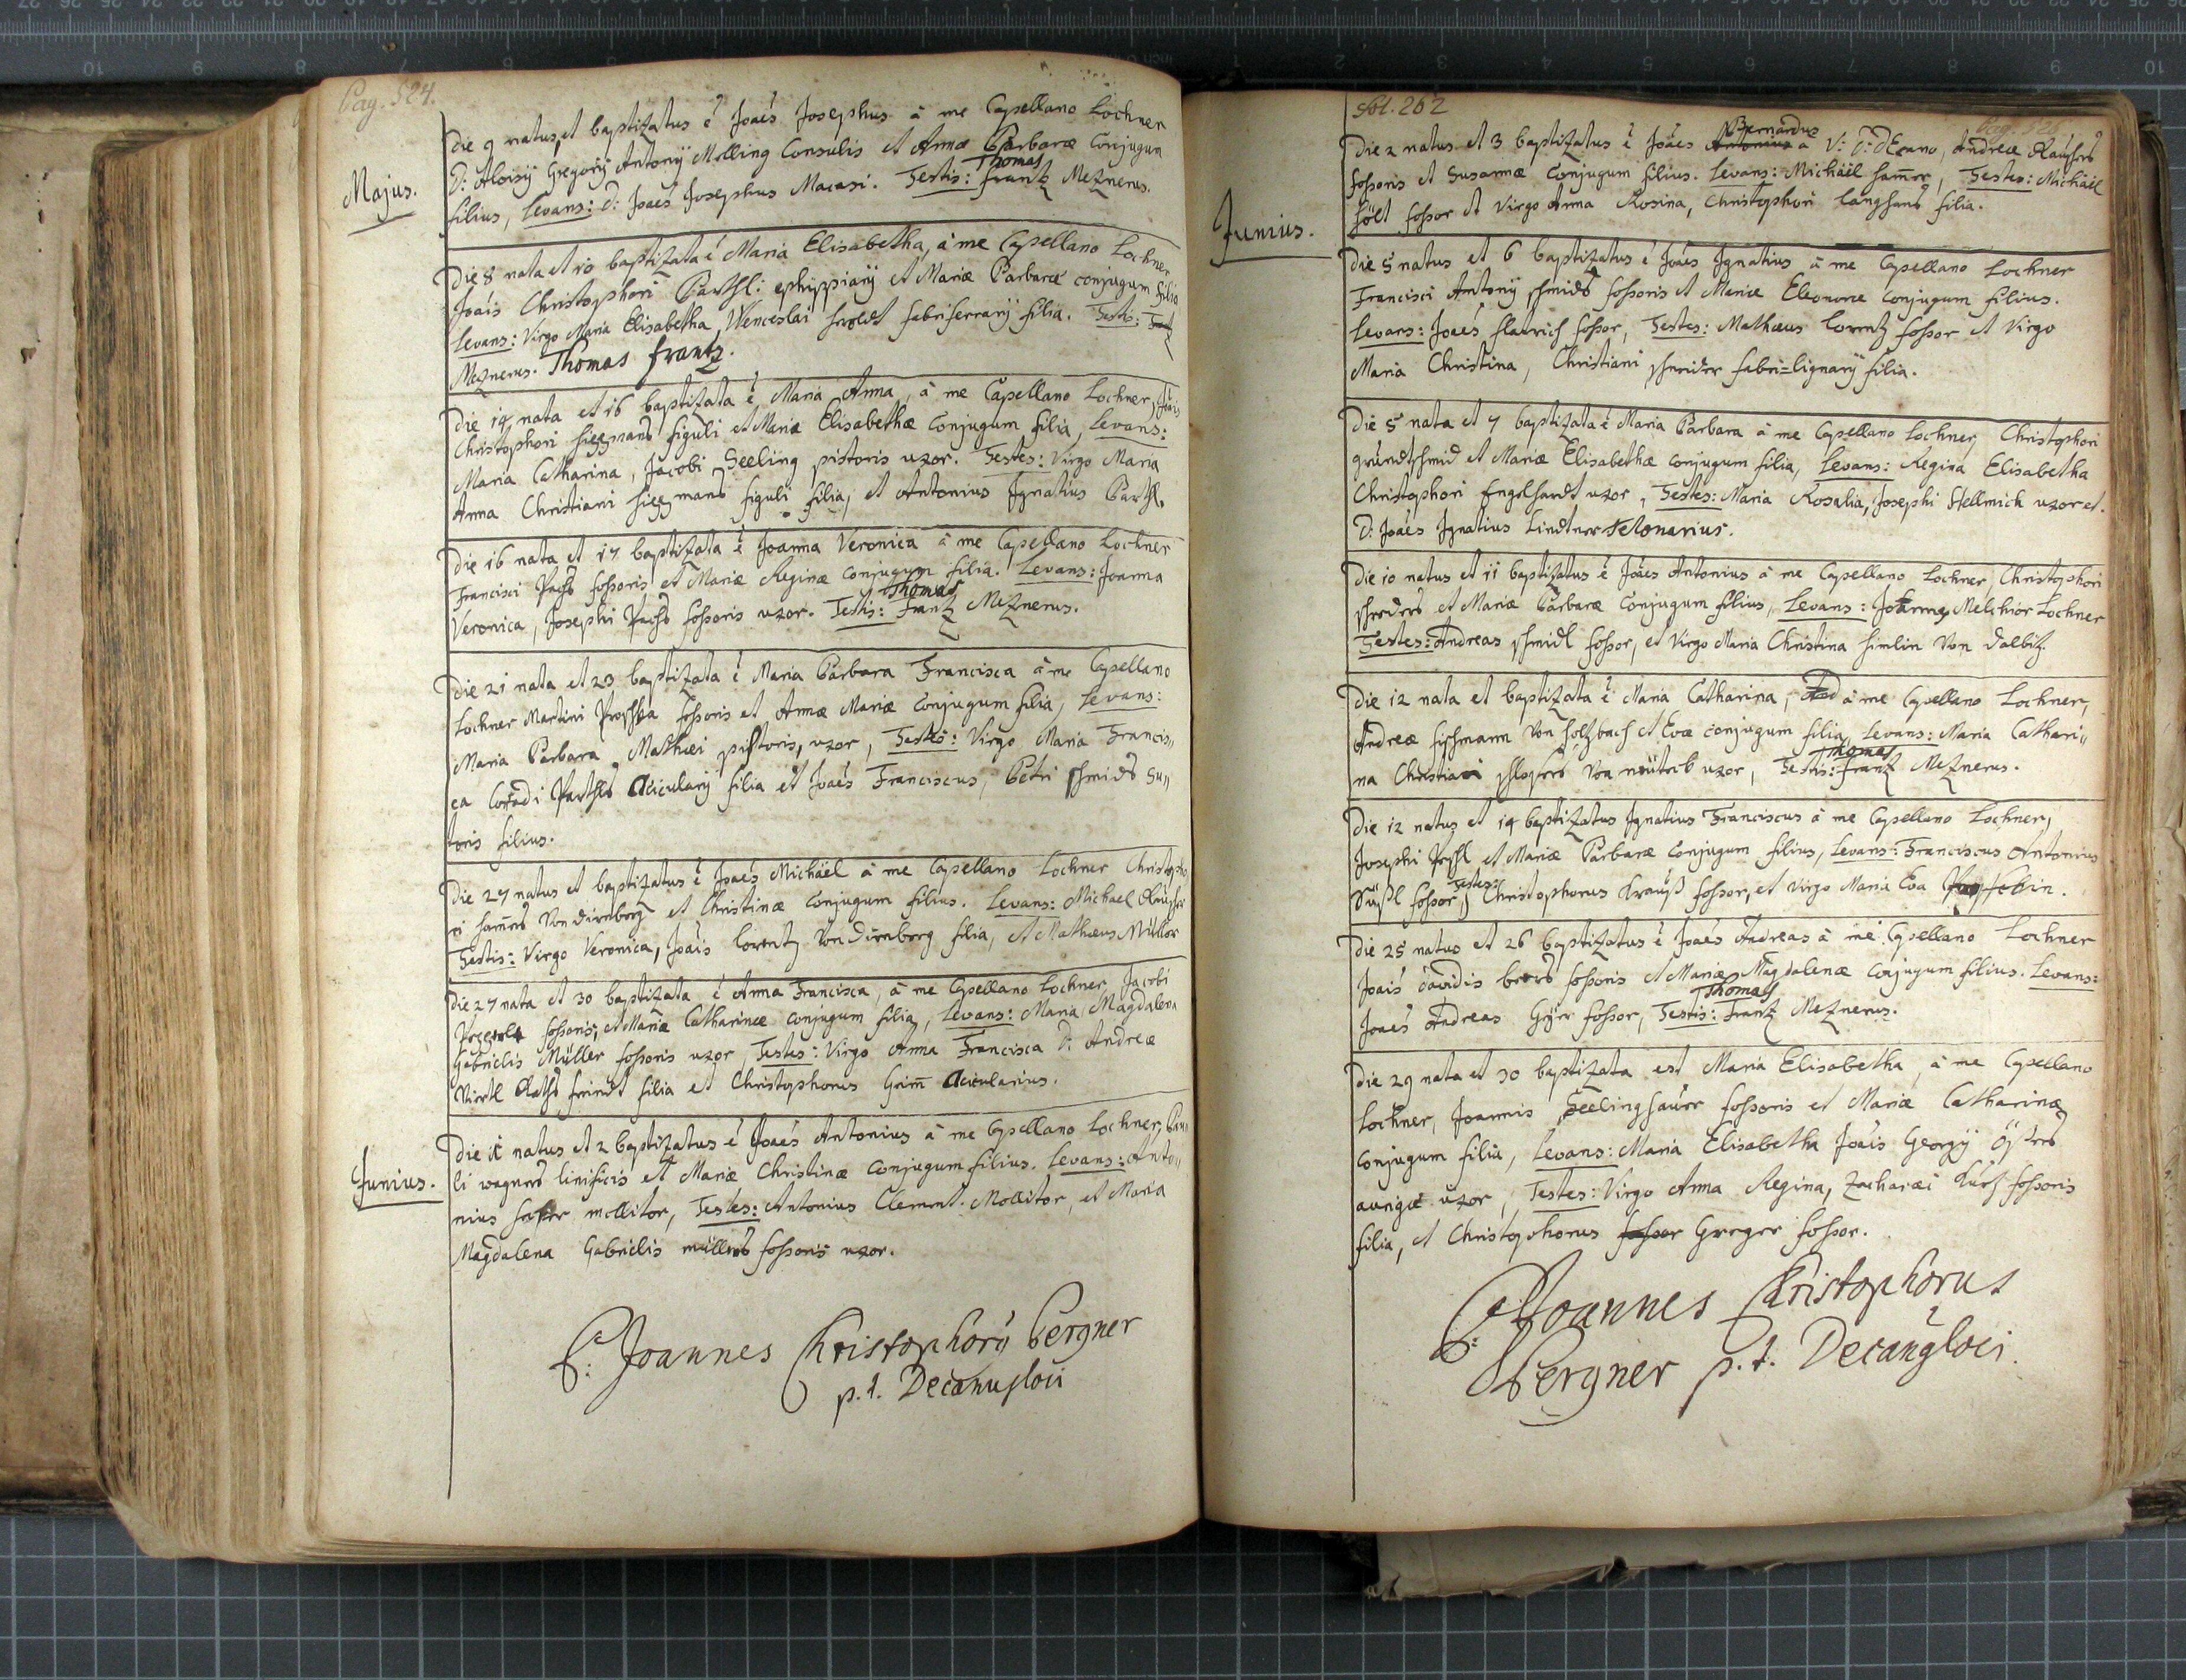 Pag. 524.
Majus.
Die 9 natus, et baptizatus ē Joaēs Josephus à me Capellano Lochner
D: Aloisÿ Gregorÿ Antonÿ Mölling Consulis et Annæ Barbaræ Conjugum
Thomas
filius, Levans: D: Joaēs Josephus Macasi. Testis: Frantz Meznerus.
Die 8 nata et 10 baptizata ē Maria Elisabetha, à me Capellano Lochner
Joāis Christophori Barthl: ephippiarÿ et Mariæ Barbaræ conjugum filia
Levans: Virgo Maria Elisabetha, Wenceslai fabriferrarÿ filia. Testis:
Meznerus. Thomas Frantz.
Die 14 nata et 16 baptizata ē Maria Anna, à me Capellano Lochner, Joāis
Christophori figuli et Mariæ Elisabethæ Conjugum filia, Levans:
Maria Catharina, Jacobi Seeling pistoris uxor. Testes: Virgo Maria
Anna Christiani figuli filia, et Antonius Ignatius Barthl.
Die 16 nata et 17 baptizata ē Joanna Veronica à me Capellano Lochner
Francisci fossoris et Mariæ Reginæ conjugum filia. Levans: Joanna
Thomas
Veronica, Josephi fossoris uxor. Testis: Frantz Meznerus.
Die 21 nata et 23 baptizata ē Maria Barbara Francisca à me Capellano
Lochner Martini fossoris et Annæ Mariæ Conjugum filia, Levans:
Maria Barbara Mathæi pistoris, uxor, Testes: Virgo Maria Francis„
ca Conradi acicularÿ filia et Joaēs Franciscus, Petri schmids Su„
toris filius.
Die 27 natus et baptizatus ē Joaēs Michäel à me Capellano Lochner Christopho
ri von dirnberg et Christinæ Conjugum filius. Levans: Michael
Testis: Virgo Veronica, Joāis lorentz von dirnberg filia, et Mathæus Müller
Die 27 nata et 30 baptizata ē Anna Francisca, à me Capellano Lochner Jacobi
fossoris, et Mariæ Catharinæ conjugum filia, Levans: Maria Magdalena
Gabrielis Müller fossoris uxor, Testes: Virgo Anna Francisca D: Andreæ
filia et Christophorus Grim̄ Acicularius.
Junius.
Die 1 natus et 2 baptizatus ē Joaēs Antonius à me Capellano Lochner, Pau„
li wagners linificis et Mariæ Christinæ Conjugum filius. Levans: Anto„
nius mollitor, Testes: Antonius Clement. Mollitor, et Maria
Magdalena Gabrielis müllers fossoris uxor.
P: Joannes Christophorg Pergner
p. t. Decanus loci
fol. 262
Junius.
Bernardus
Die 2 natus et 3 baptizatus ē Joaēs Antonius à V: D: dEcano, Andreæ
fossoris et Susannæ Conjugum filius. Levans: Michäel ham̄er, Testes: Michäel
fossor et Virgo Anna Rosina, Christophori langhans filia.
Die 5 natus et 6 baptizatus ē Joaēs Ignatius à me Capellano Lochner
Francisci Antonÿ schmids fossoris et Mariæ Eleonoræ Conjugum filius.
Levans: Joaēs fossor, Testes: Mathæus lorentz fossor et Virgo
Maria Christina, Christiani schneider fabri=lignarÿ filia.
Die 5 nata et 7 baptizata ē Maria Barbara à me Capellano Lochner, Christophori
gründtschmid et Mariæ Elisabethæ conjugum filia, Levans: Regina Elisabetha
Christophori Engelhardt uxor, Testes: Maria Rosalia, Josephi Hellmich uxor et.
D: Joaēs Ignatius Lindtner telonarius.
Die 10 natus et 11 baptizatus ē Joaēs Antonius à me Capellano Lochner, Christophori
et Mariæ Barbaræ Conjugum filius, Levans: Joannes Melchior Lochner
Testes: Andreas schmidl fossor, et Virgo Maria Christina himlin Von dalbitz.
Die 12 nata et baptizata ē Maria Catharina, à me Capellano Lochner,
Andreæ fischmann Von holzbach et Evæ conjugum filia, Levans: Maria Cathari„
Thomas
na Christiani uxor, Testis: Frantz Meznerus.
Die 12 natus et 14 baptizatus Ignatius Franciscus à me Capellano Lochner,
Josephi et Mariæ Barbaræ Conjugum filius, Levans: Franciscus Antonius
Testes:
Süßl fossor, Christophorus Krauß fossor, et Virgo Maria Eva
Die 25 natus et 26 baptizatus ē Joaēs Andreas à me Capellano Lochner
Joāis davidis fossoris et Mariæ Magdalenæ Conjugum filius. Levans:
Thomas
Joaēs Andreas fossor, Testis: Frantz Meznerus.
Die 29 nata et 30 baptizata est Maria Elisabetha, à me Capellano
Lochner, Joannis Seelinghauer fossoris et Mariæ Catharinæ
Conjugum filia, Levans: Maria Elisabetha Joāis Georgÿ
aurigæ uxor, Testes: Virgo Anna Regina, Zachariæ fossoris
filia, et Christophorus fossor Greger fossor.
P: Joannes Christophorus
Pergner p. t. Decanus loci.